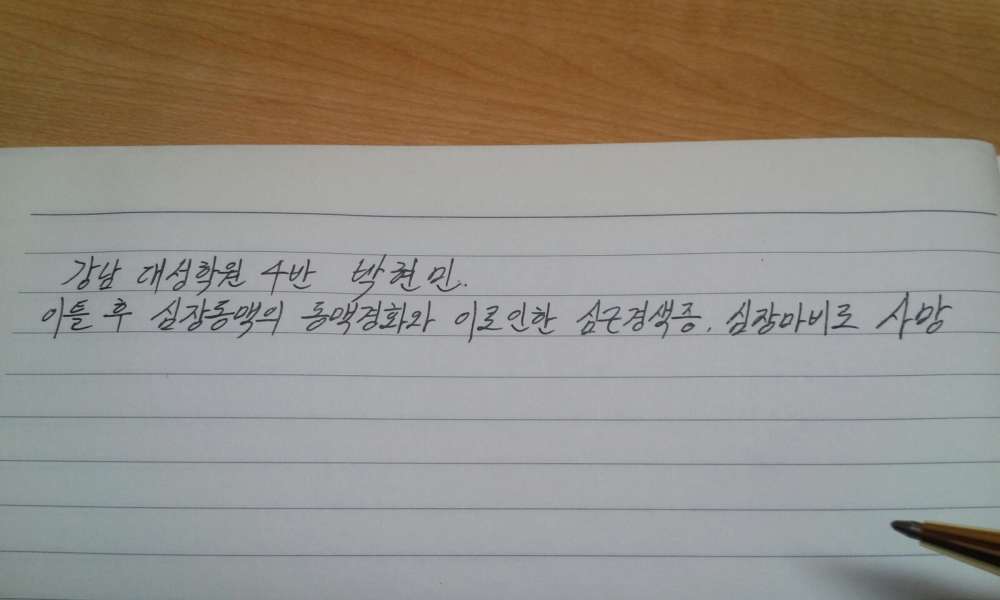 강남 대성학원 4반 박현민.
이틀 후 심장동맥의 동맥경화와 이로인한 심근경색증. 심장마비로 사망